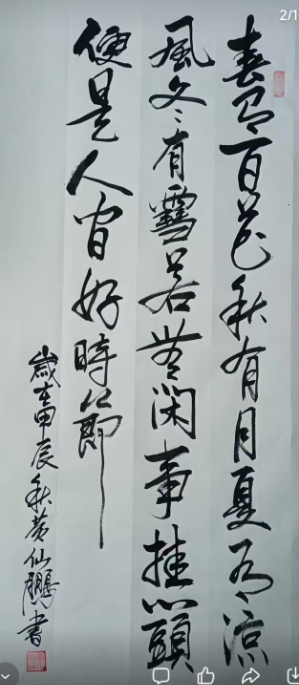 2/1
春有百花秋有月夏有涼
風冬有雪若無閑事挂心頭
便是人間好時節
歲在甲辰秋黄仙鵬書